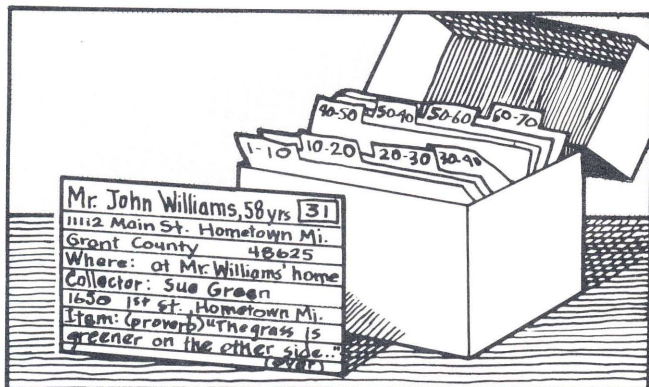 40-50 50-40 50-60 60-70
1-10 10-20 20-30 30-40
Mr. John Williams, 58 yrs 31
11112 Main St. Hometown Mi.
Grant County 48625
Where: at Mr. Williams' home
Collector: Sue Green
1650 1st St. Hometown Mi.
Item: (proverb) "The grass is
greener on the other side.."
(over)